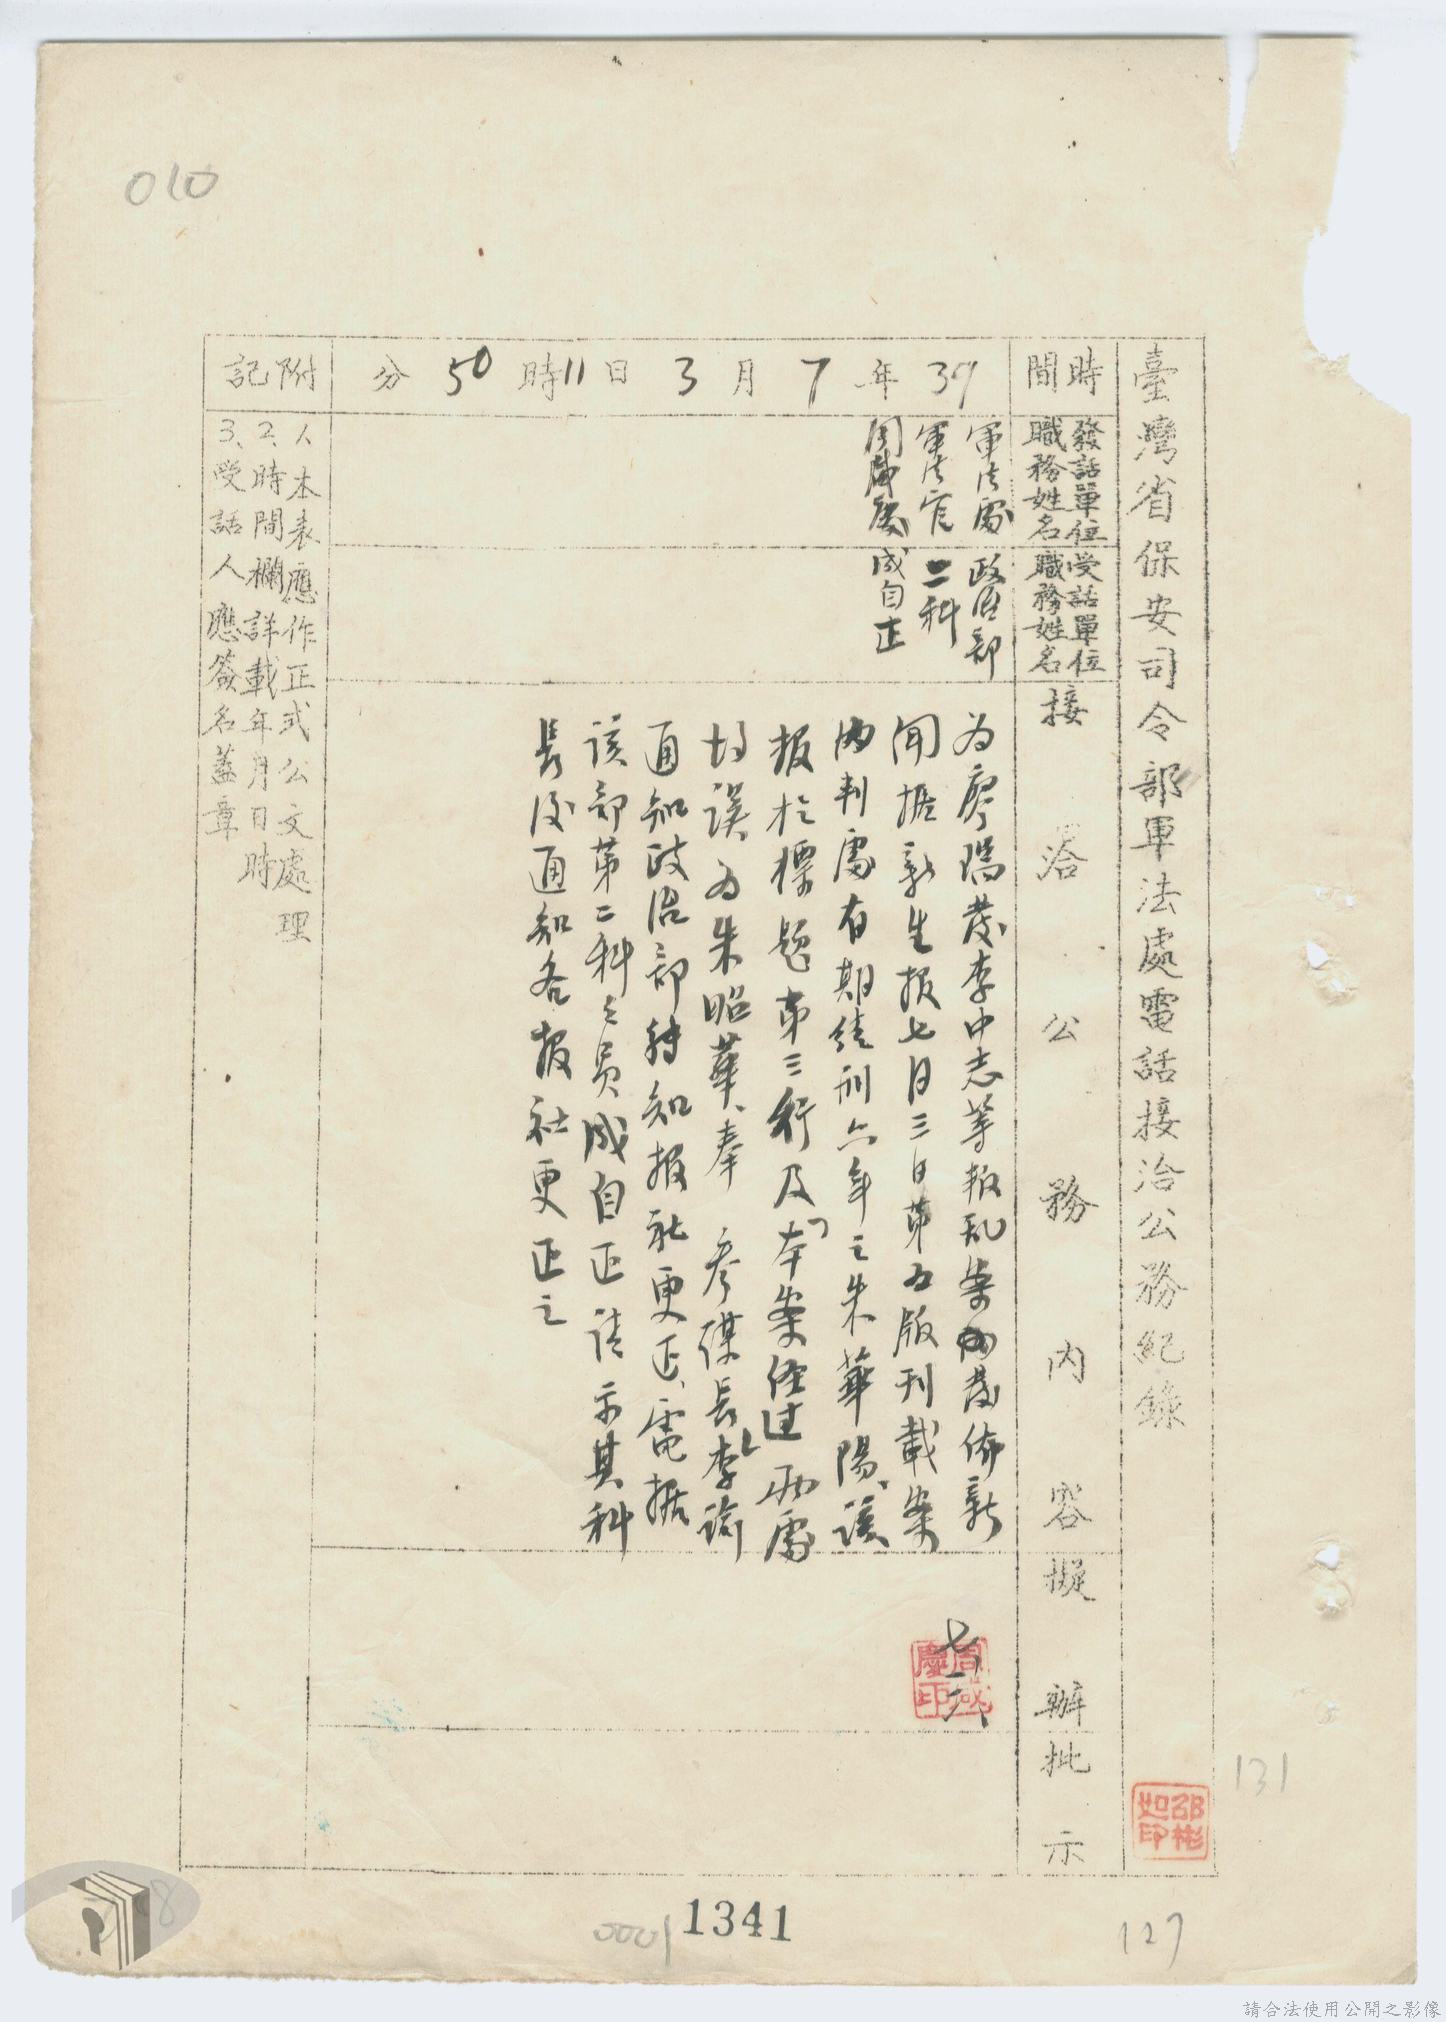 010
臺灣省保安司令部軍法處電話接洽公務紀錄
時間
39年7月3日11時50分
發話單位
職務姓名
軍法處
軍法官
周咸慶
受話單位
職務姓名
政治部
二科
成自正
接洽公務內容
为廖瑞發李中志等叛乱案內發佈新
聞據新生报七月三日第五版刊載案
內判處有期徒刑六年之朱華陽、误
报於標題第三行及「本案經过」兩處
均误为朱昭華、奉 參谋長李諭
通知政治部转知报社更正、電据
该部第二科之员成自正請示其科
長後通知各报社更正之
擬辦
七、六
周咸慶印
批示
附記
1、本表應作正式公文處理
2、時間欄詳載年月日時
3、受話人應簽名蓋章
邵彬如印
131
127
1341
0001
請合法使用公開之影像